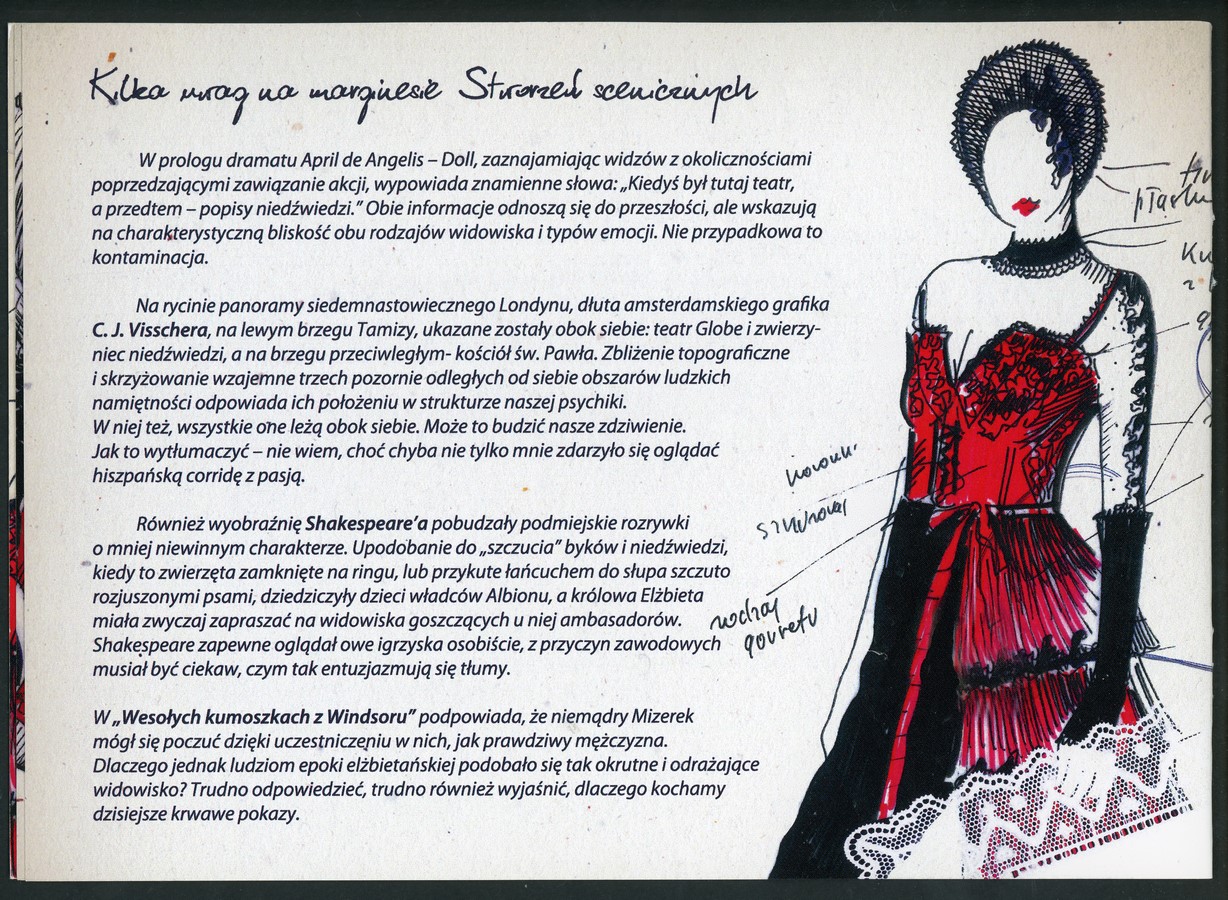 Kilka uwag na marginesie Stworzeń scenicznych
W prologu dramatu April de Angelis – Doll, zaznajamiając widzów z okolicznościami
poprzedzającymi zawiązanie akcji, wypowiada znamienne słowa: „Kiedyś był tutaj teatr,
a przedtem – popisy niedźwiedzi.” Obie informacje odnoszą się do przeszłości, ale wskazują
na charakterystyczną bliskość obu rodzajów widowiska i typów emocji. Nie przypadkowa to
kontaminacja.
Na rycinie panoramy siedemnastowiecznego Londynu, dłuta amsterdamskiego grafika
C. J. Visschera, na lewym brzegu Tamizy, ukazane zostały obok siebie: teatr Globe i zwierzy-
niec niedźwiedzi, a na brzegu przeciwległym- kościół św. Pawła. Zbliżenie topograficzne
i skrzyżowanie wzajemne trzech pozornie odległych od siebie obszarów ludzkich
namiętności odpowiada ich położeniu w strukturze naszej psychiki.
W niej też, wszystkie one leżą obok siebie. Może to budzić nasze zdziwienie.
Jak to wytłumaczyć – nie wiem, choć chyba nie tylko mnie zdarzyło się oglądać
hiszpańską corridę z pasją.
Również wyobraźnię Shakespeare'a pobudzały podmiejskie rozrywki
o mniej niewinnym charakterze. Upodobanie do „szczucia” byków i niedźwiedzi,
kiedy to zwierzęta zamknięte na ringu, lub przykute łańcuchem do słupa szczuto
rozjuszonymi psami, dziedziczyły dzieci władców Albionu, a królowa Elżbieta
miała zwyczaj zapraszać na widowiska goszczących u niej ambasadorów.
Shakespeare zapewne oglądał owe igrzyska osobiście, z przyczyn zawodowych
musiał być ciekaw, czym tak entuzjazmują się tłumy.
W „Wesołych kumoszkach z Windsoru” podpowiada, że niemądry Mizerek
mógł się poczuć dzięki uczestniczeniu w nich, jak prawdziwy mężczyzna.
Dlaczego jednak ludziom epoki elżbietańskiej podobało się tak okrutne i odrażające
widowisko? Trudno odpowiedzieć, trudno również wyjaśnić, dlaczego kochamy
dzisiejsze krwawe pokazy.
rodzaj